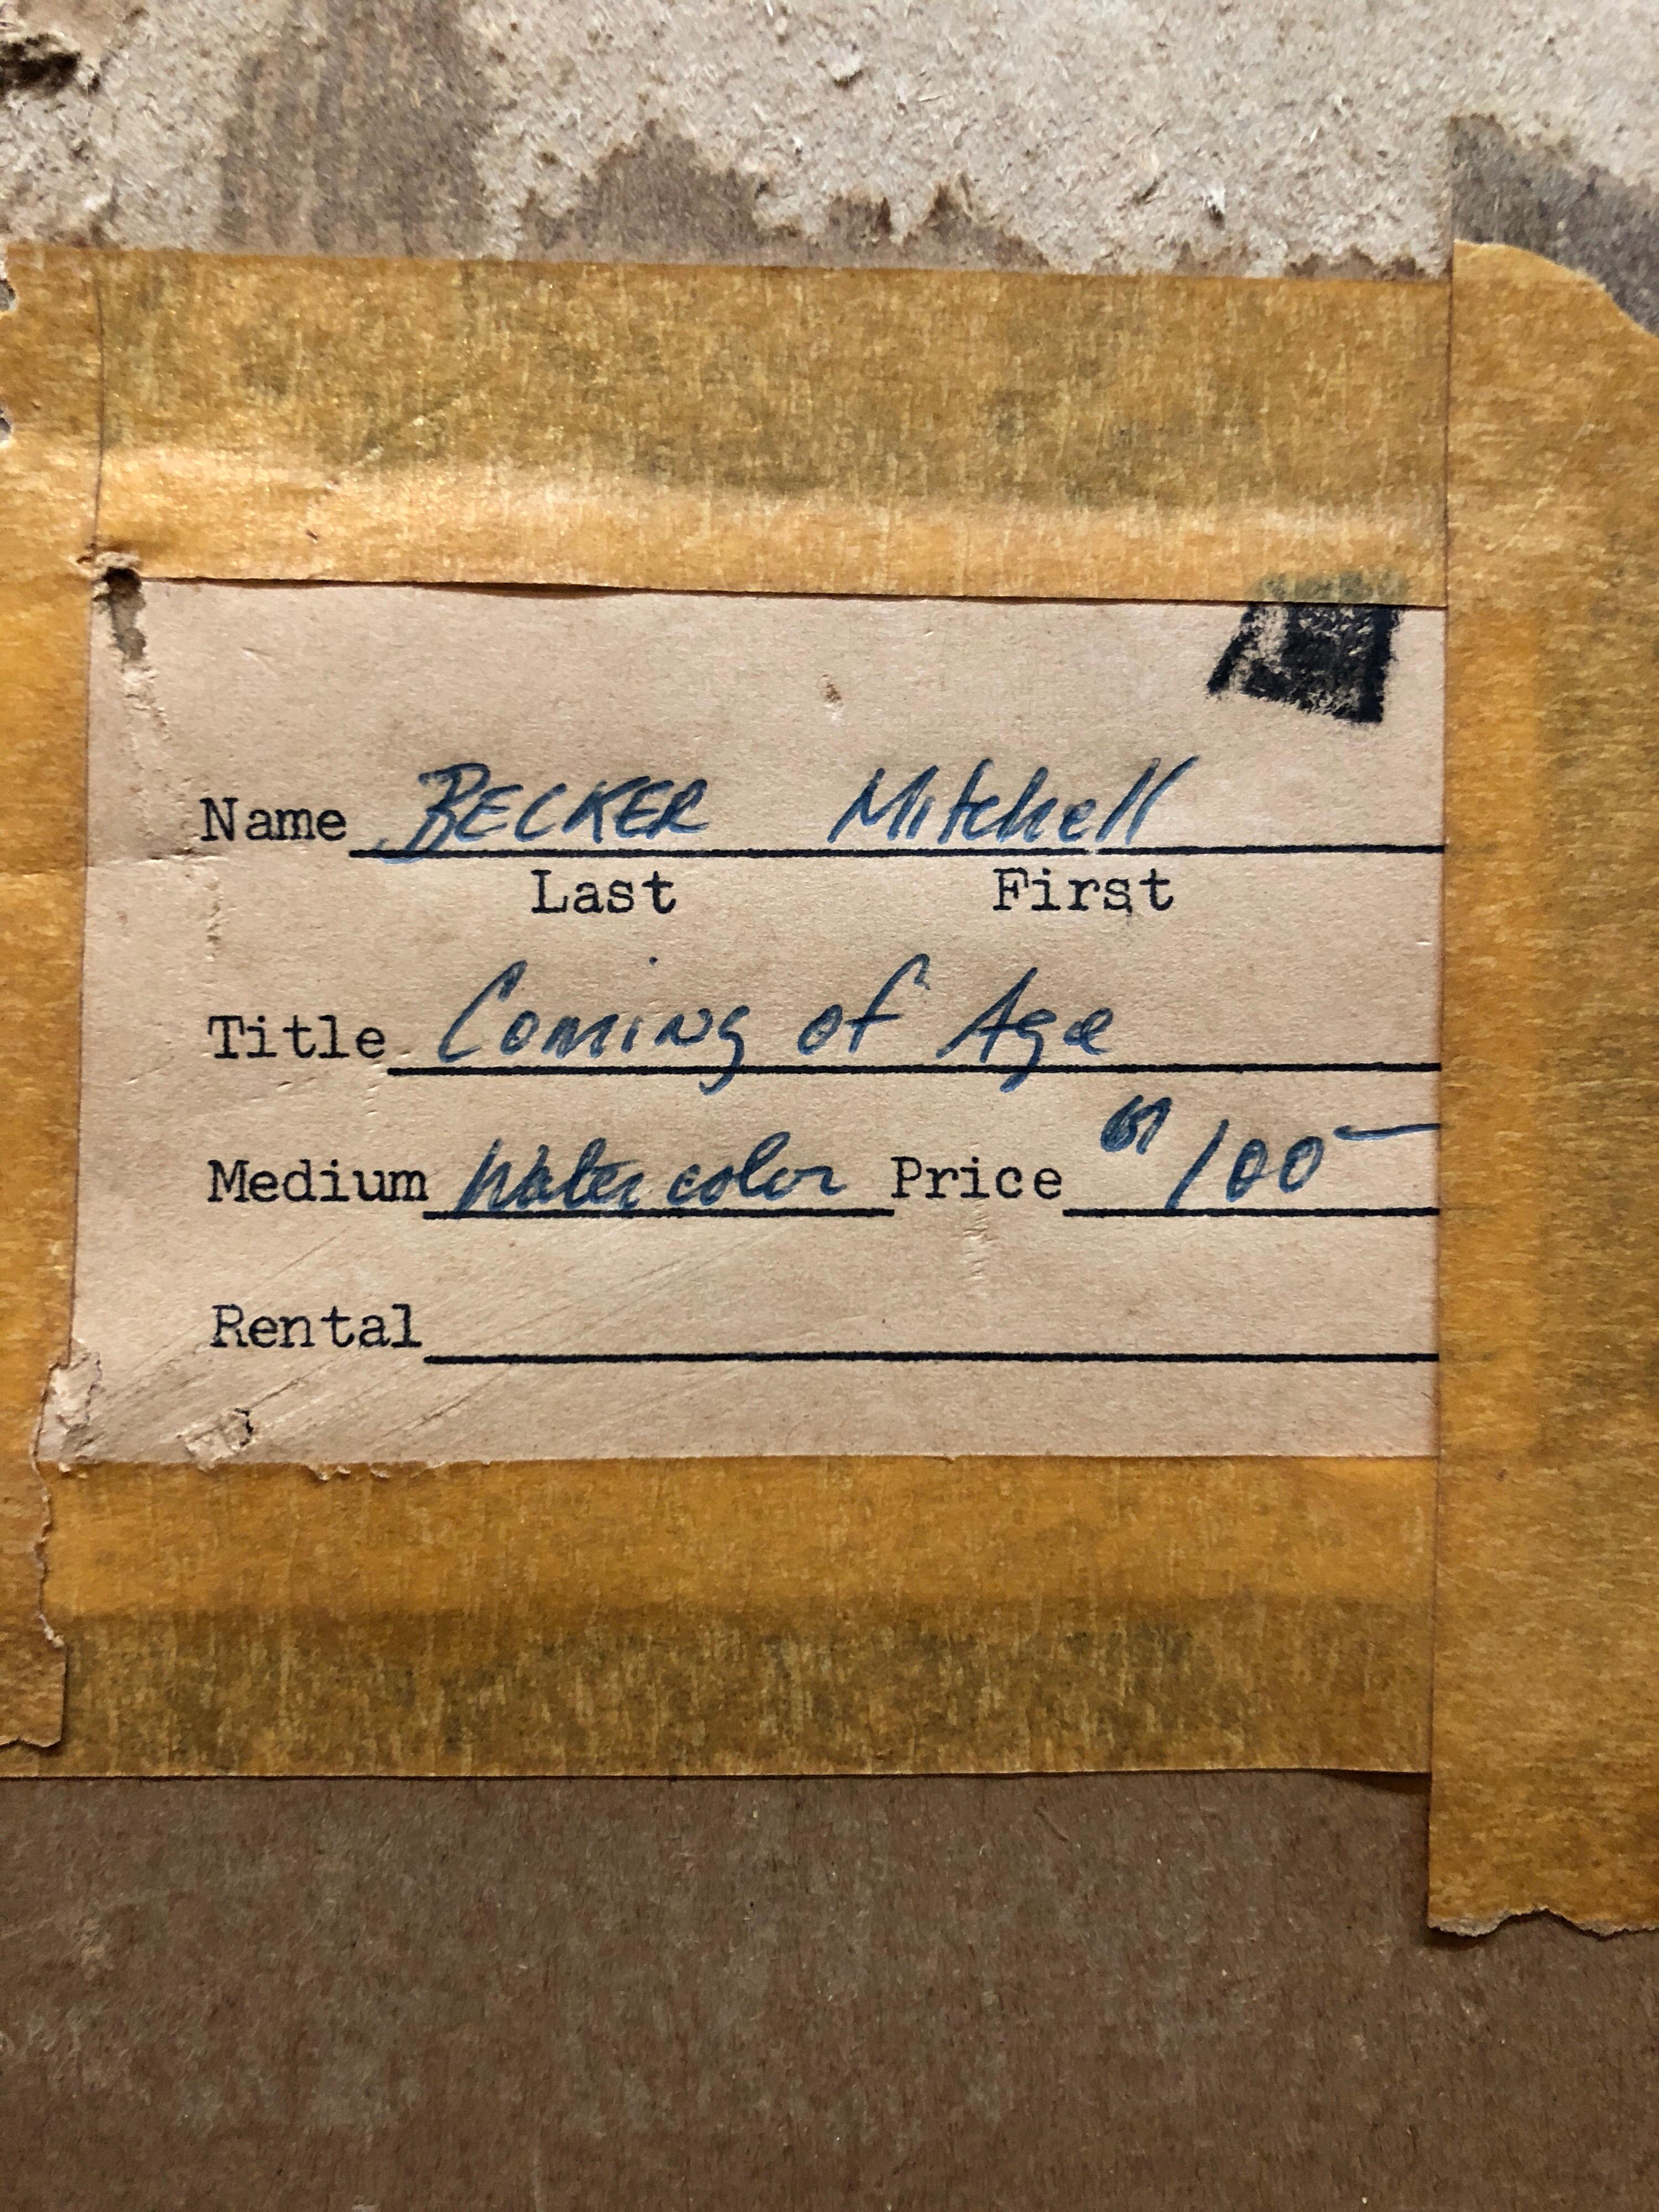 Name BECKER Mitchell
Last First
Title Coming of Age
Medium Watercolor Price $100-
Rental